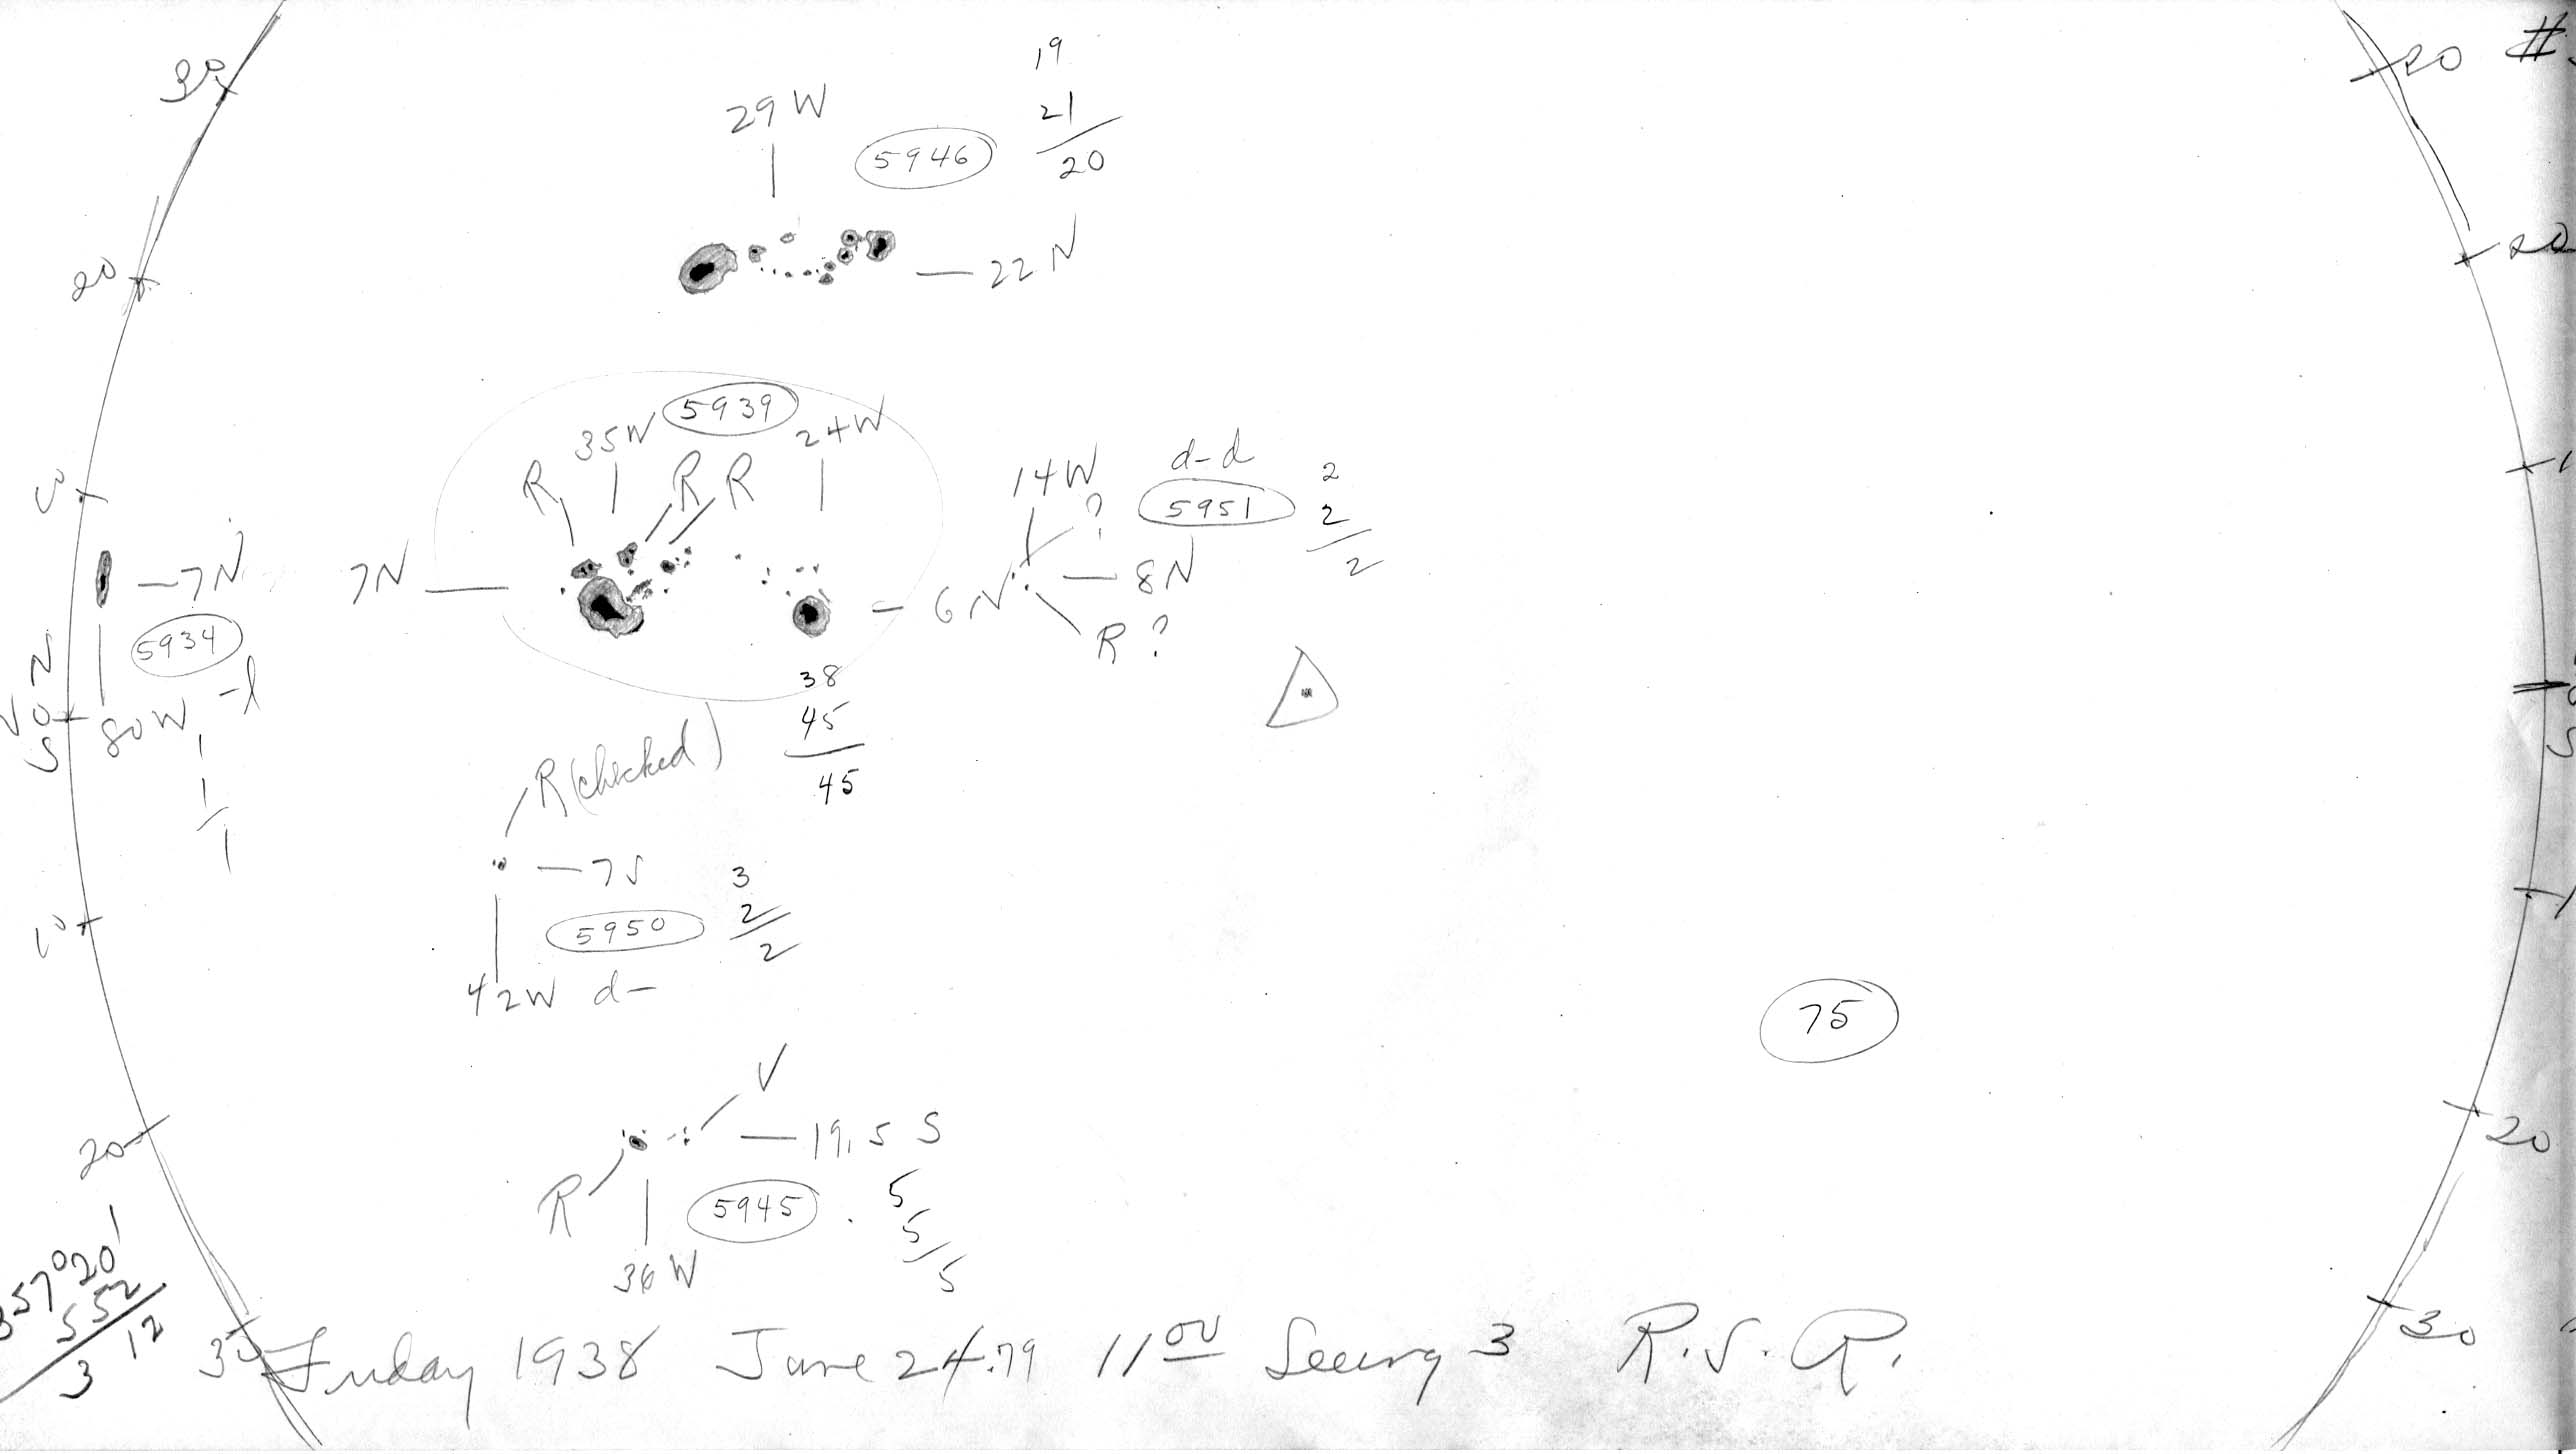 30
29 W
5946
19
21
20
20
#
20
22 N
20
5939
35W
24W
R
R R
7N
6 N
14W
?
d-d
5951
2
2
2
8N
R ?
10
-7N
5934
-l
80W
1
1
1
N
0
S
38
45
45
R (checked)
-7S
5950
3
2
2
42W d-
10
75
V
19.5 S
R
5945
5
5
5
36 W
20
20
357°20'
5 52
3 12
30
30
Friday 1938 June 24.79 11 00 Seeing 3 R.S.R.